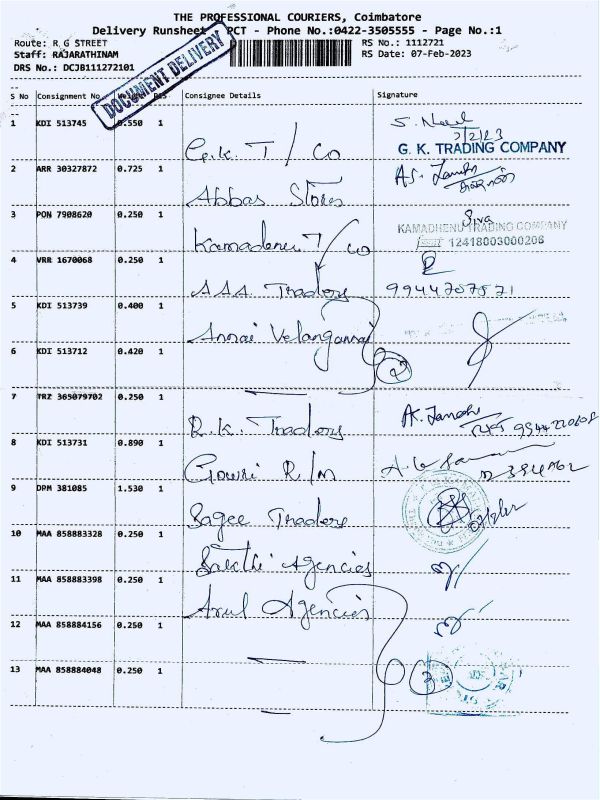 THE PROFESSIONAL COURIERS, Coimbatore
Delivery Runsheet PCT - Phone No.:0422-3505555 - Page No.:1
Route: R G STREET
RS No.: 1112721
Staff: RAJARATHINAM
RS Date: 07-Feb-2023
DRS No.: DCJB111272101
DOCUMENT DELIVERY
S No Consignment No Weight Pcs Consignee Details Signature
1 KDI 513745 0.550 1 G.K. T / Co
7/2/23
G. K. TRADING COMPANY
2 ARR 30327872 0.725 1 Abbas Stores
3 PON 7908620 0.250 1 Kamadenu T/ co
Siva
KAMADHENU TRADING COMPANY
12418003000206
4 VRR 1670068 0.250 1 AAA Traders
5 KDI 513739 0.400 1 Annai Velangannai
6 KDI 513712 0.420 1 2
7 TRZ 365079702 0.250 1 R.K. Traders
8 KDI 513731 0.890 1 Gowri R/m
9 DPM 381085 1.530 1 Bagee Traders
10 MAA 858883328 0.250 1 Sakthi Agencies
11 MAA 858883398 0.250 1 Arul Agencies
12 MAA 858884156 0.250 1
13 MAA 858884048 0.250 1 3